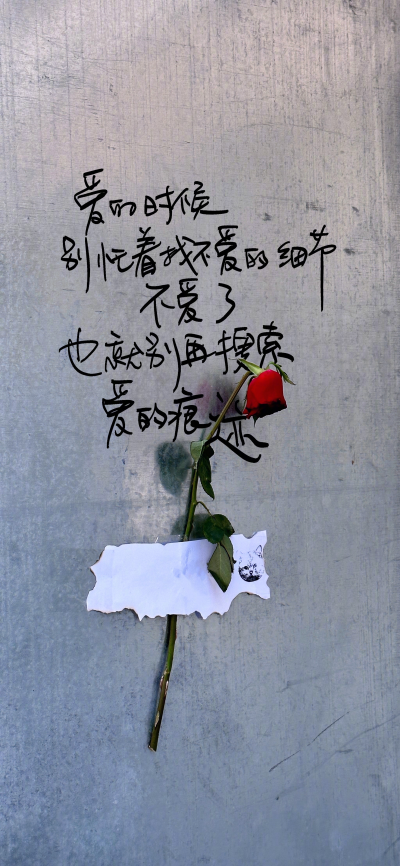 爱的时候
别忙着找不爱的细节
不爱了
也就别再搜索
爱的痕迹